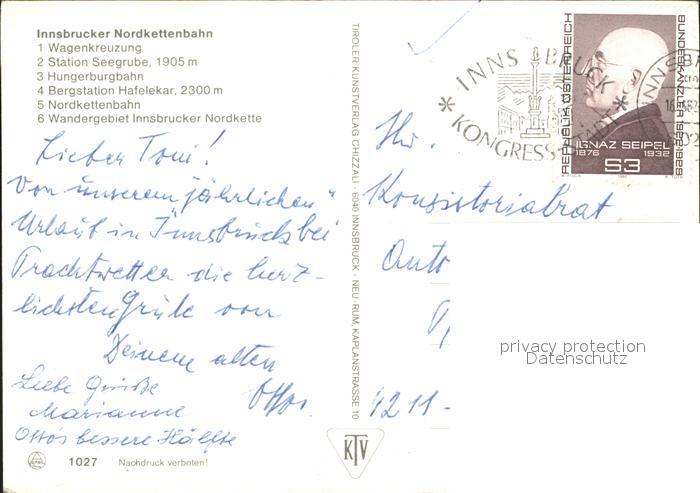 Innsbrucker Nordkettenbahn
1 Wagenkreuzung
2 Station Seegrube, 1905 m
3 Hungerburgbahn
4 Bergstation Hafelekar, 2300 m
5 Nordkettenbahn
6 Wandergebiet Innsbrucker Nordkette
Lieber Toni!
Von unserem "jährlichen"
Urlaub in Innsbruck bei
Prachtwetter die herz-
lichsten Grüße von
Deinem alten
Otto.
Liebe Grüße
Marianne
Otto's bessere Hälfte
1027 Nachdruck verboten!
TIROLER KUNSTVERLAG CHIZZALI · 6040 INNSBRUCK - NEU-RUM, KAPLANSTRASSE 10
KTV
INNSBRUCK
KONGRESS-STADT
REPUBLIK ÖSTERREICH
BUNDESKANZLER 1922-1929
IGNAZ SEIPEL
1876 1932
S3
Hr.
Konsistorialrat
4211
privacy protection
Datenschutz